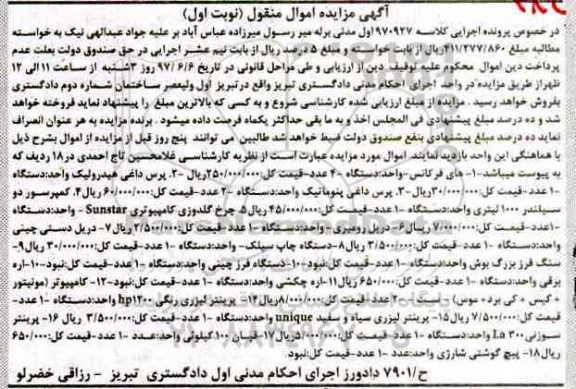 آگهی مزایده اموال منقول (نوبت اول)
در خصوص پرونده اجرایی کلاسه ۹۷۰۹۲۷ اول مدنی برله میر رسول میرزاده عباس آباد بر علیه جواد عبدالهی نیک به خواسته
مطالبه مبلغ ۴۱۱/۲۷۷/۸۶۰ ریال از بابت خواسته و مبلغ ۵ درصد ریال از بابت نیم عشر اجرایی در حق صندوق دولت بعلت عدم
پرداخت دین اموال محکوم علیه توقیف دین از ارزیابی و طی مراحل قانونی در تاریخ ۹۷/۶/۶ روز ۳شنبه از ساعت ۱۱ الی ۱۲
ظهراز طریق مزایده در واحد اجرای احکام مدنی دادگستری تبریز واقع درتبریز اول ولیعصر ساختمان شماره دوم دادگستری
بفروش خواهد رسید. مزایده از مبلغ ارزیابی شده کارشناسی شروع و به کسی که بالاترین مبلغ را پیشنهاد نماید فروخته خواهد
شد و ده درصد مبلغ پیشنهادی فی المجلس اخذ و به ما بقی حداکثر یکماه فرصت داده میشود. برنده مزایده به هر عنوان انصراف
نماید ده درصد مبلغ پیشنهادی بنفع صندوق دولت ضبط خواهد شد طالبین می توانند پنج روز قبل از مزایده از اموال بشرح ذیل
با هماهنگی این واحد بازدید نمایند. اموال مورد مزایده عبارت است از نظریه کارشناسی غلامحسین تاج احمدی در ۱۸ ردیف که
به پیوست میباشد-۱- های فرکانس-واحد:دستگاه -۴ عدد-قیمت کل:۲۵۰/۰۰۰/۰۰۰ریال -۳. پرس داغی هیدرولیک واحد:دستگاه
-۱ عدد-قیمت کل:۳۰/۰۰۰/۰۰۰ریال-۳. پرس داغی پنوماتیک واحد:دستگاه -۲ عدد-قیمت کل:۶۰/۰۰۰/۰۰۰ ریال۴. کمپرسور دو
سیلندر ۱۰۰۰ لیتری واحد:دستگاه -۱ عدد-قیمت کل:۴۵/۰۰۰/۰۰۰ ریال۵. چرخ گلدوزی کامپیوتری Sunstar - واحد:دستگاه
-۱ عدد-قیمت کل:۷/۰۰۰/۰۰۰ ریال۶- دریل رومیزی - واحد:دستگاه -۱ عدد-قیمت کل:۲/۵۰۰/۰۰۰ ریال۷- دریل دستی چینی
واحد:دستگاه -۱ عدد-قیمت کل:۳/۵۰۰/۰۰۰ ریال۸-دستگاه چاپ سیلک-واحد:دستگاه -۱ عدد-قیمت کل:۳۰/۰۰۰/۰۰۰ ریال۹-
سنگ فرز بزرگ بوش واحد:دستگاه -۱ عدد-قیمت کل:نبود-۱۰-دستگاه فرز چینی واحد:دستگاه -۱ عدد-قیمت کل:نبود-۱۰-اره
برقی واحد:دستگاه -۱ عدد-قیمت کل:۶۵۰/۰۰۰ ریال۱۱-اره چکشی واحد:دستگاه -۱ عدد-قیمت کل:نبود-۱۲- کامپیوتر (مونیتور
+ کیس + کی برد+ موس) - ست - ۲ عدد-قیمت کل:۸/۰۰۰/۰۰۰ریال۱۴- پرینتر لیزری رنگی hp۱۲۰۰ واحد:دستگاه -۱ عدد-
قیمت کل:۷/۵۰۰/۰۰۰ ریال۱۵- پرینتر لیزری سیاه و سفید unique واحد:دستگاه -۱ عدد-قیمت کل:۳/۵۰۰/۰۰۰ ریال ۱۶- پرینتر
سوزنی La ۳۰۰ واحد:دستگاه -۱ عدد-قیمت کل: ریال۱۷- قپان ۱۰۰ کیلوئی واحد:عدد- ۱ عدد-قیمت کل:۶۵۰/۰۰۰
ریال۱۸- پیچ گوشتی شارژی واحد:عدد -۱ عدد-قیمت کل:نبود.
ح/۷۹۰۱ دادورز اجرای احکام مدنی اول دادگستری تبریز - رزاقی خضرلو